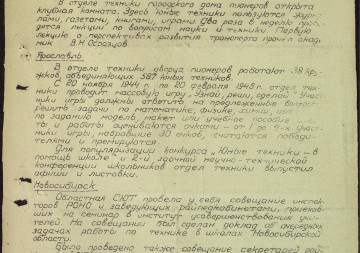 В отделе техники городского дома пионеров открыта
клубная комната. Здесь юные техники пользуются жур-
налами, газетами, книгами, играми. Два раза в неделю прово-
дятся лекции по вопросам науки и техники. Первую
лекцию о перспективах развития транспорта прочел акаде-
мик В.Н. Образцов
Ярославль
В отделе техники дворца пионеров работают 38 кру-
жков, объединяющих 587 юных техников.
С 20 ноября 1944 г. по 20 февраля 1945 г. отдел
техники проводит массовую игру "Узнай, реши, сделай". Участ-
ники игры должны ответить на предложенные вопросы
решить задачи по математике, физике, химии,
по заданию модель, макет или учебное пособие
ты и работы оцениваются очками - от 1 до Участ-
ники игры, набравшие 30 очков, считаются победи-
телями и премируются.
Для популяризации конкурса "Юные техники - в
помощь школе" и 2-й заочной научно-технической
конференции школьников отдел техники выпустил
афиши и листовки.
Новосибирск
Областная СЮТ провела у себя совещание инспек-
торов РОНО и заведующих райпедкабинетами, приехав-
ших на семинар в институт усовершенствования учи-
телей. На совещании был сделан доклад об очередных
задачах работы по технике в школах Новосибирской
области.
Было проведено также совещание секретарей рай-